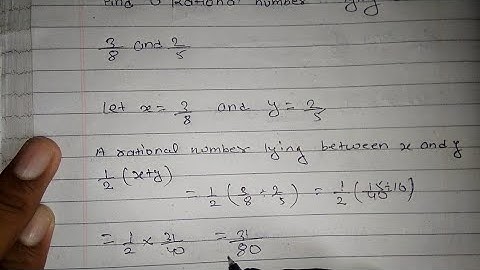 Find a rational number lying
3/8 and 2/5
Let x = 3/8 and y = 2/5
A rational number lying between x and y
1/2 (x+y)
= 1/2 (3/8 + 2/5) = 1/2 (15+16/40)
= 1/2 × 31/40 = 31/80